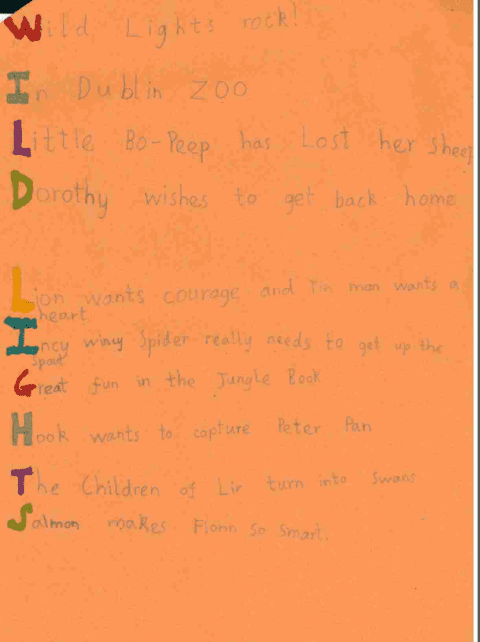 Wild Lights rock!
In Dublin ZOO
Little Bo-Peep has Lost her sheep
Dorothy wishes to get back home
Lion wants courage and Tin man wants a
heart
Incy wincy Spider really needs to get up the
spout
Great fun in the Jungle Book
Hook wants to capture Peter Pan
The Children of Lir turn into Swans
Salmon makes Fionn so smart.